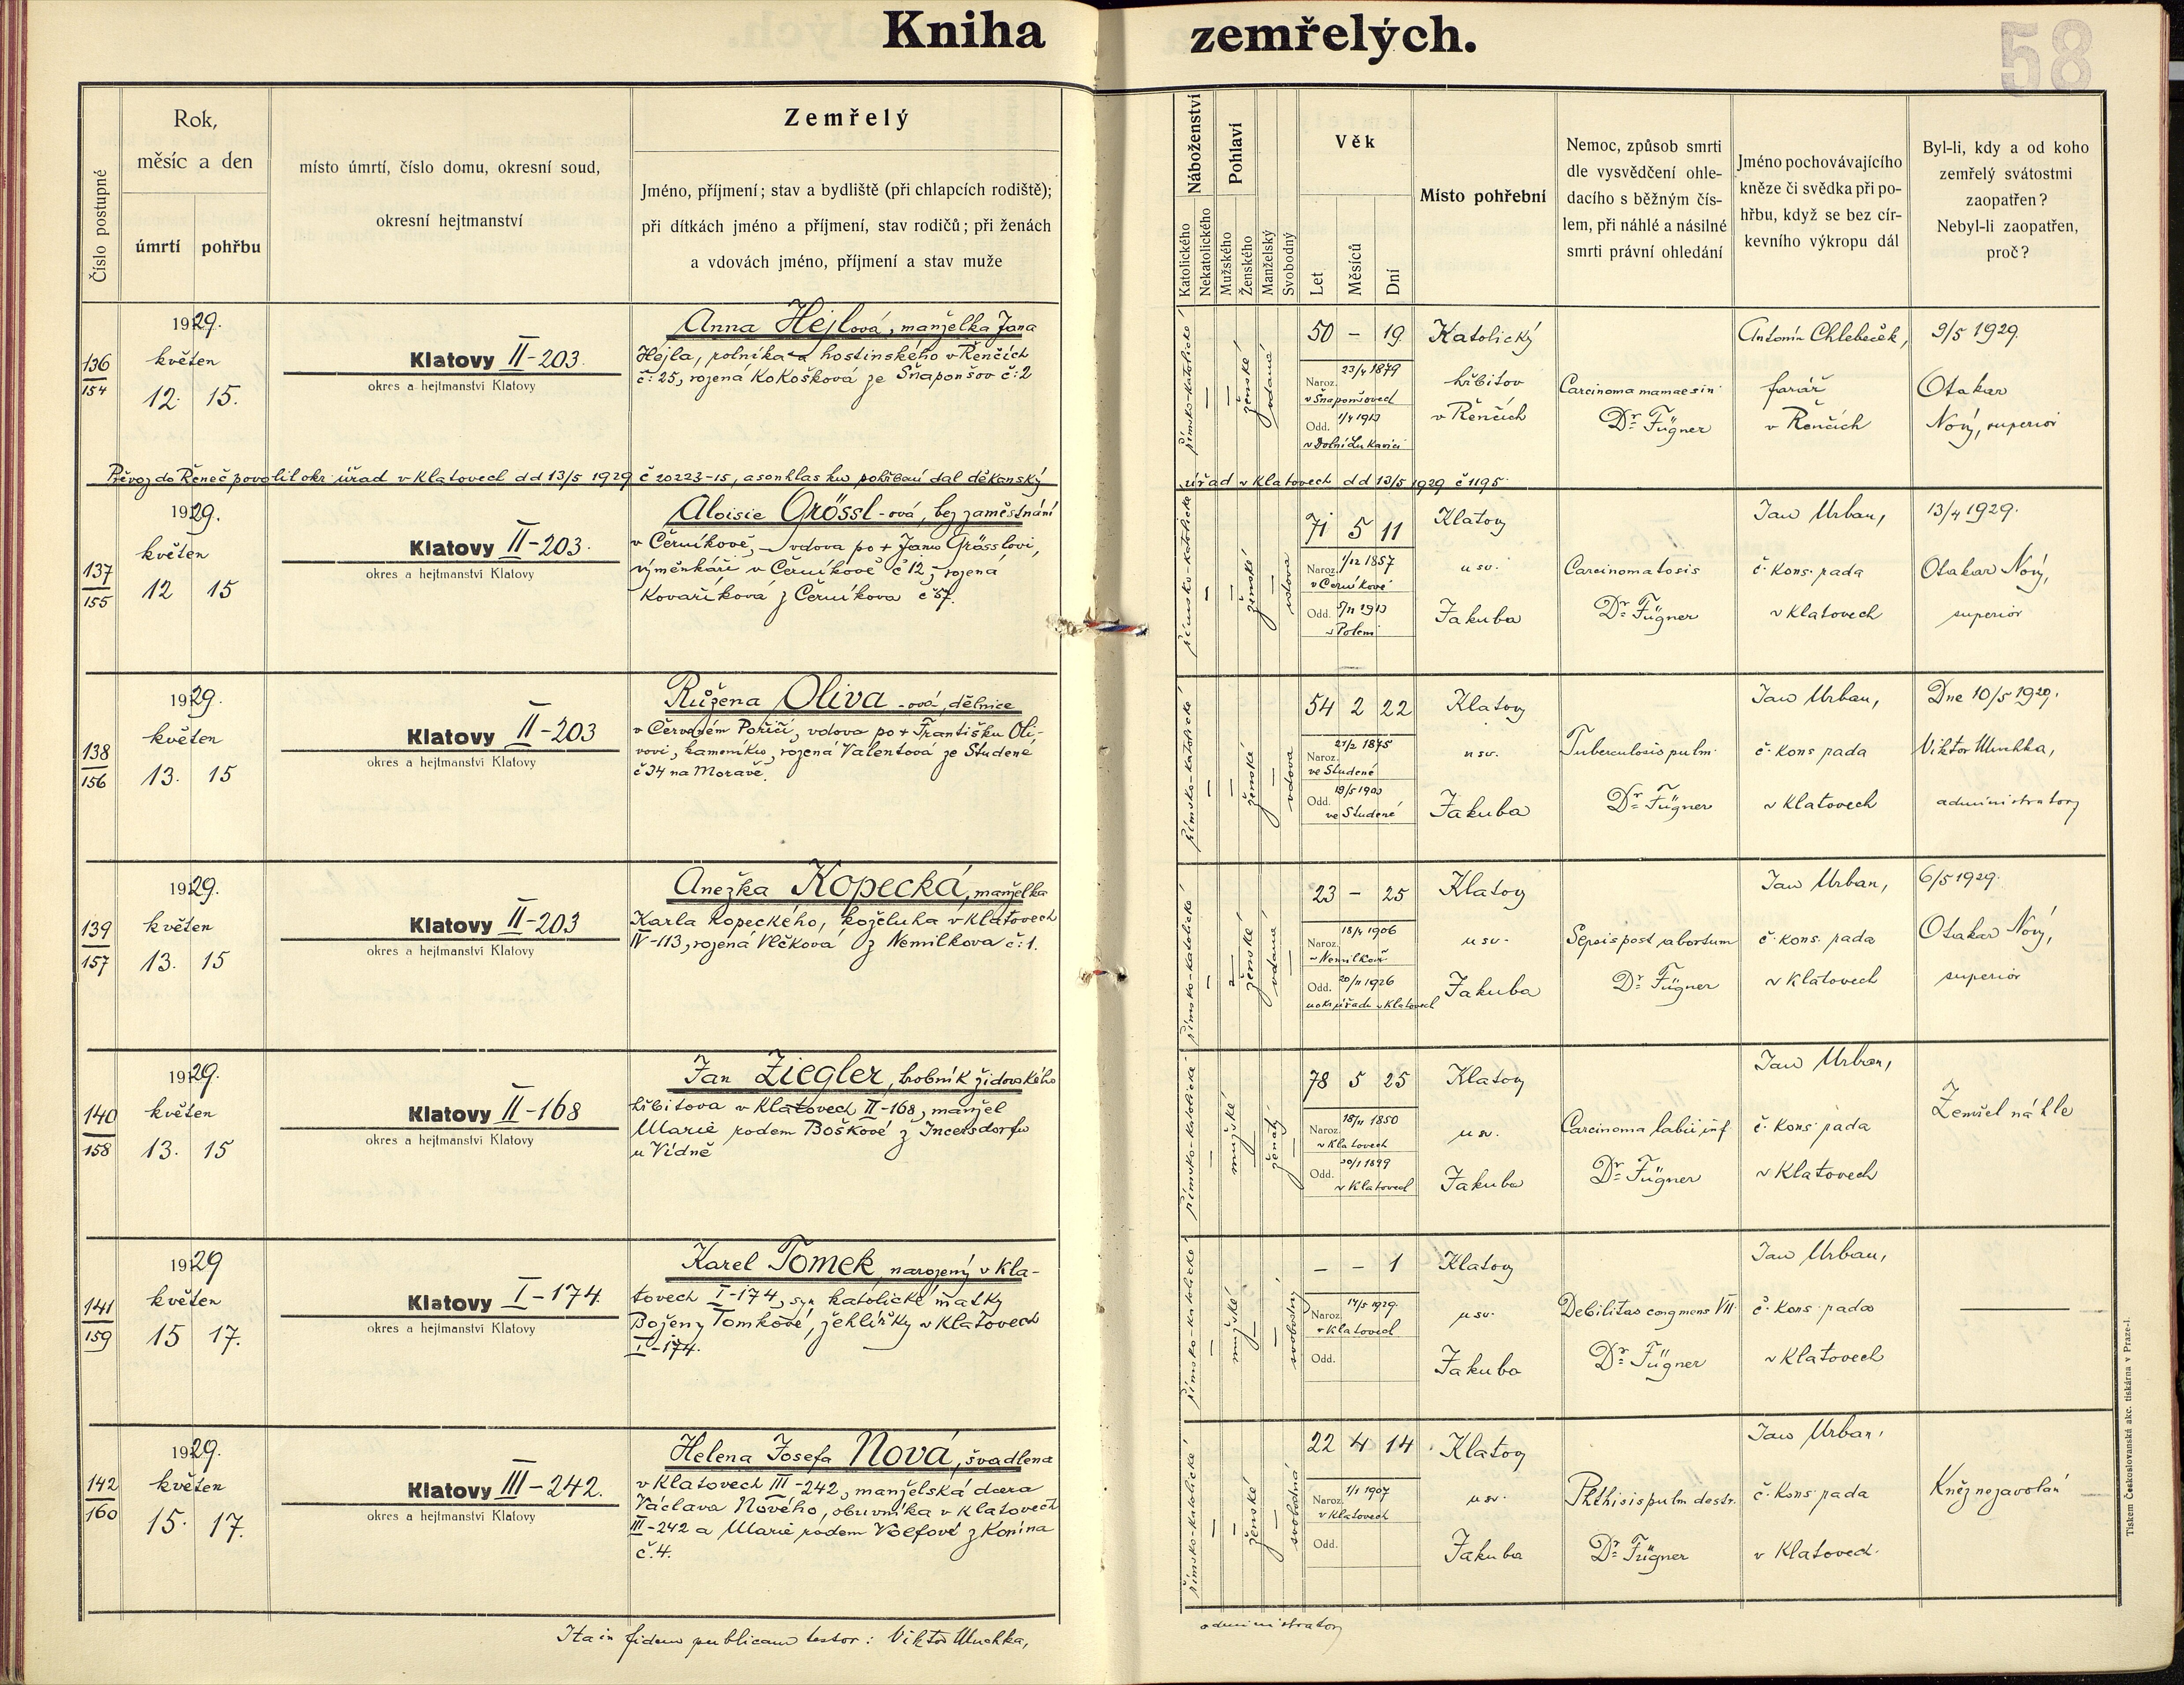 Kniha zemřelých.
58
Číslo postupné
Rok,
měsíc a den
úmrtí
pohřbu
místo úmrtí, číslo domu, okresní soud,
okresní hejtmanství
Zemřelý
Jméno, příjmení; stav a bydliště (při chlapcích rodiště);
při dítkách jméno a příjmení, stav rodičů; při ženách
a vdovách jméno, příjmení a stav muže
Náboženství
Katolického
Nekatolického
Pohlaví
Mužského
Ženského
Manželský
Svobodný
Věk
Let
Měsíců
Dní
Místo pohřební
Nemoc, způsob smrti
dle vysvědčení ohle-
dacího s běžným čís-
lem, při náhlé a násilné
smrti právní ohledání
Jméno pochovávajícího
kněze či svědka při po-
hřbu, když se bez cír-
kevního výkropu dál
Byl-li, kdy a od koho
zemřelý svátostmi
zaopatřen?
Nebyl-li zaopatřen,
proč?
136
154
1929.
květen
12. 15.
Klatovy II-203.
okres a hejtmanství Klatovy
Anna Hejlová, manželka Jana
Hejla, rolníka a hostinského v Řenčích
č: 25, rozená Kokošková ze Šnaponšov č:2
římsko-katolické
—
—
ženské
vdaná
50 — 19
Naroz. 23/4 1879
v Šnaponšovech
Odd. 1/4 1913
v Dolní Lukavici
Katolický
hřbitov
v Řenčích
Carcinoma mamae sin
Dr. Fügner
Antonín Chlebeček,
farář
v Řenčích
9/5 1929.
Otakar
Nový, superior
Převoz do Řeneč povolil okr. úřad v Klatovech dd 13/5 1929 č 20223-15, a souhlas ku pohřbení dal děkanský
úřad v Klatovech dd 13/5 1929 č 1195.
137
155
1929.
květen
12 15
Klatovy II-203.
okres a hejtmanství Klatovy
Aloisie Grössl-ová, bez zaměstnání
v Černíkově, vdova po + Janu Grösslovi,
výměnkáři v Černíkově č 12, rozená
Kovaříková z Černíkova č 57.
římsko-katolické
—
—
ženské
—
vdova
71 5 11
Naroz. 1/12 1857
v Černíkově
Odd. 5/11 1913
v Poleni
Klatovy
u sv.
Jakuba
Carcinomatosis
Dr. Fügner
Jan Urban,
č. kons. rada
v Klatovech
13/4 1929.
Otakar Nový,
superior
138
156
1929.
květen
13. 15
Klatovy II-203
okres a hejtmanství Klatovy
Růžena Oliva-ová, dělnice
v Červeném Poříčí, vdova po + Františku Oli-
vovi, kameníku, rozená Valentová ze Studené
č 34 na Moravě.
římsko-katolické
—
—
ženské
—
vdova
54 2 22
Naroz. 21/2 1875
ve Studené
Odd. 19/5 1903
ve Studené
Klatovy
u sv.
Jakuba
Tuberculosis pulm.
Dr. Fügner
Jan Urban,
č. kons rada
v Klatovech
Dne 10/5 1929.
Viktor Muchka,
administrator
139
157
1929.
květen
13. 15
Klatovy II-203
okres a hejtmanství Klatovy
Anežka Kopecká, manželka
Karla Kopeckého, koželuha v Klatovech
IV-113, rozená Vlčková z Nemilkova č: 1.
římsko-katolické
—
—
ženské
vdaná
—
23 — 25
Naroz. 18/4 1906
v Nemilkově
Odd. 20/11 1926
u okr. úřadu v Klatovech
Klatovy
u sv.
Jakuba
Sepsis post abortum
Dr. Fügner
Jan Urban,
č. kons. rada
v Klatovech
6/5 1929.
Otakar Nový,
superior
140
158
1929.
květen
13. 15
Klatovy II-168
okres a hejtmanství Klatovy
Jan Ziegler, hrobník židovského
hřbitova v Klatovech II-168, manžel
Marie rodem Boškové z Incersdorfu
u Vídně
římsko-katolické
—
mužské
—
ženatý
—
78 5 25
Naroz. 18/11 1850
v Klatovech
Odd. 30/1 1899
v Klatovech
Klatovy
u sv.
Jakuba
Carcinoma labii inf
Dr. Fügner
Jan Urban,
č. kons rada
v Klatovech
Zemřel náhle
141
159
1929
květen
15 17.
Klatovy I-174.
okres a hejtmanství Klatovy
Karel Tomek, narozený v Kla-
tovech I-174, syn katolické matky
Boženy Tomkové, žehlířky v Klatovech
I-174.
římsko-katolické
—
mužské
—
—
svobodný
— — 1
Naroz. 14/5 1929.
v Klatovech
Odd.
Klatovy
u sv.
Jakuba
Debilitas cong mens VII.
Dr. Fügner
Jan Urban,
č. kons. rada
v Klatovech
———
142
160
1929.
květen
15. 17.
Klatovy III-242.
okres a hejtmanství Klatovy
Helena Josefa Nová, švadlena
v Klatovech III-242, manželská dcera
Václava Nového, obuvníka v Klatovech
III-242 a Marie rodem Volfové z Konína
č. 4.
římsko-katolické
—
—
ženské
—
svobodná
22 4 14
Naroz. 1/1 1907
v Klatovech
Odd.
Klatovy
u sv.
Jakuba
Phthisis pulm destr.
Dr. Fügner
Jan Urban,
č. kons rada
v Klatovech.
Kněz nezavolán
Ita in fidem publicam testor: Viktor Muchka, administrator
Tiskem Československá akc. tiskárna v Praze-I.